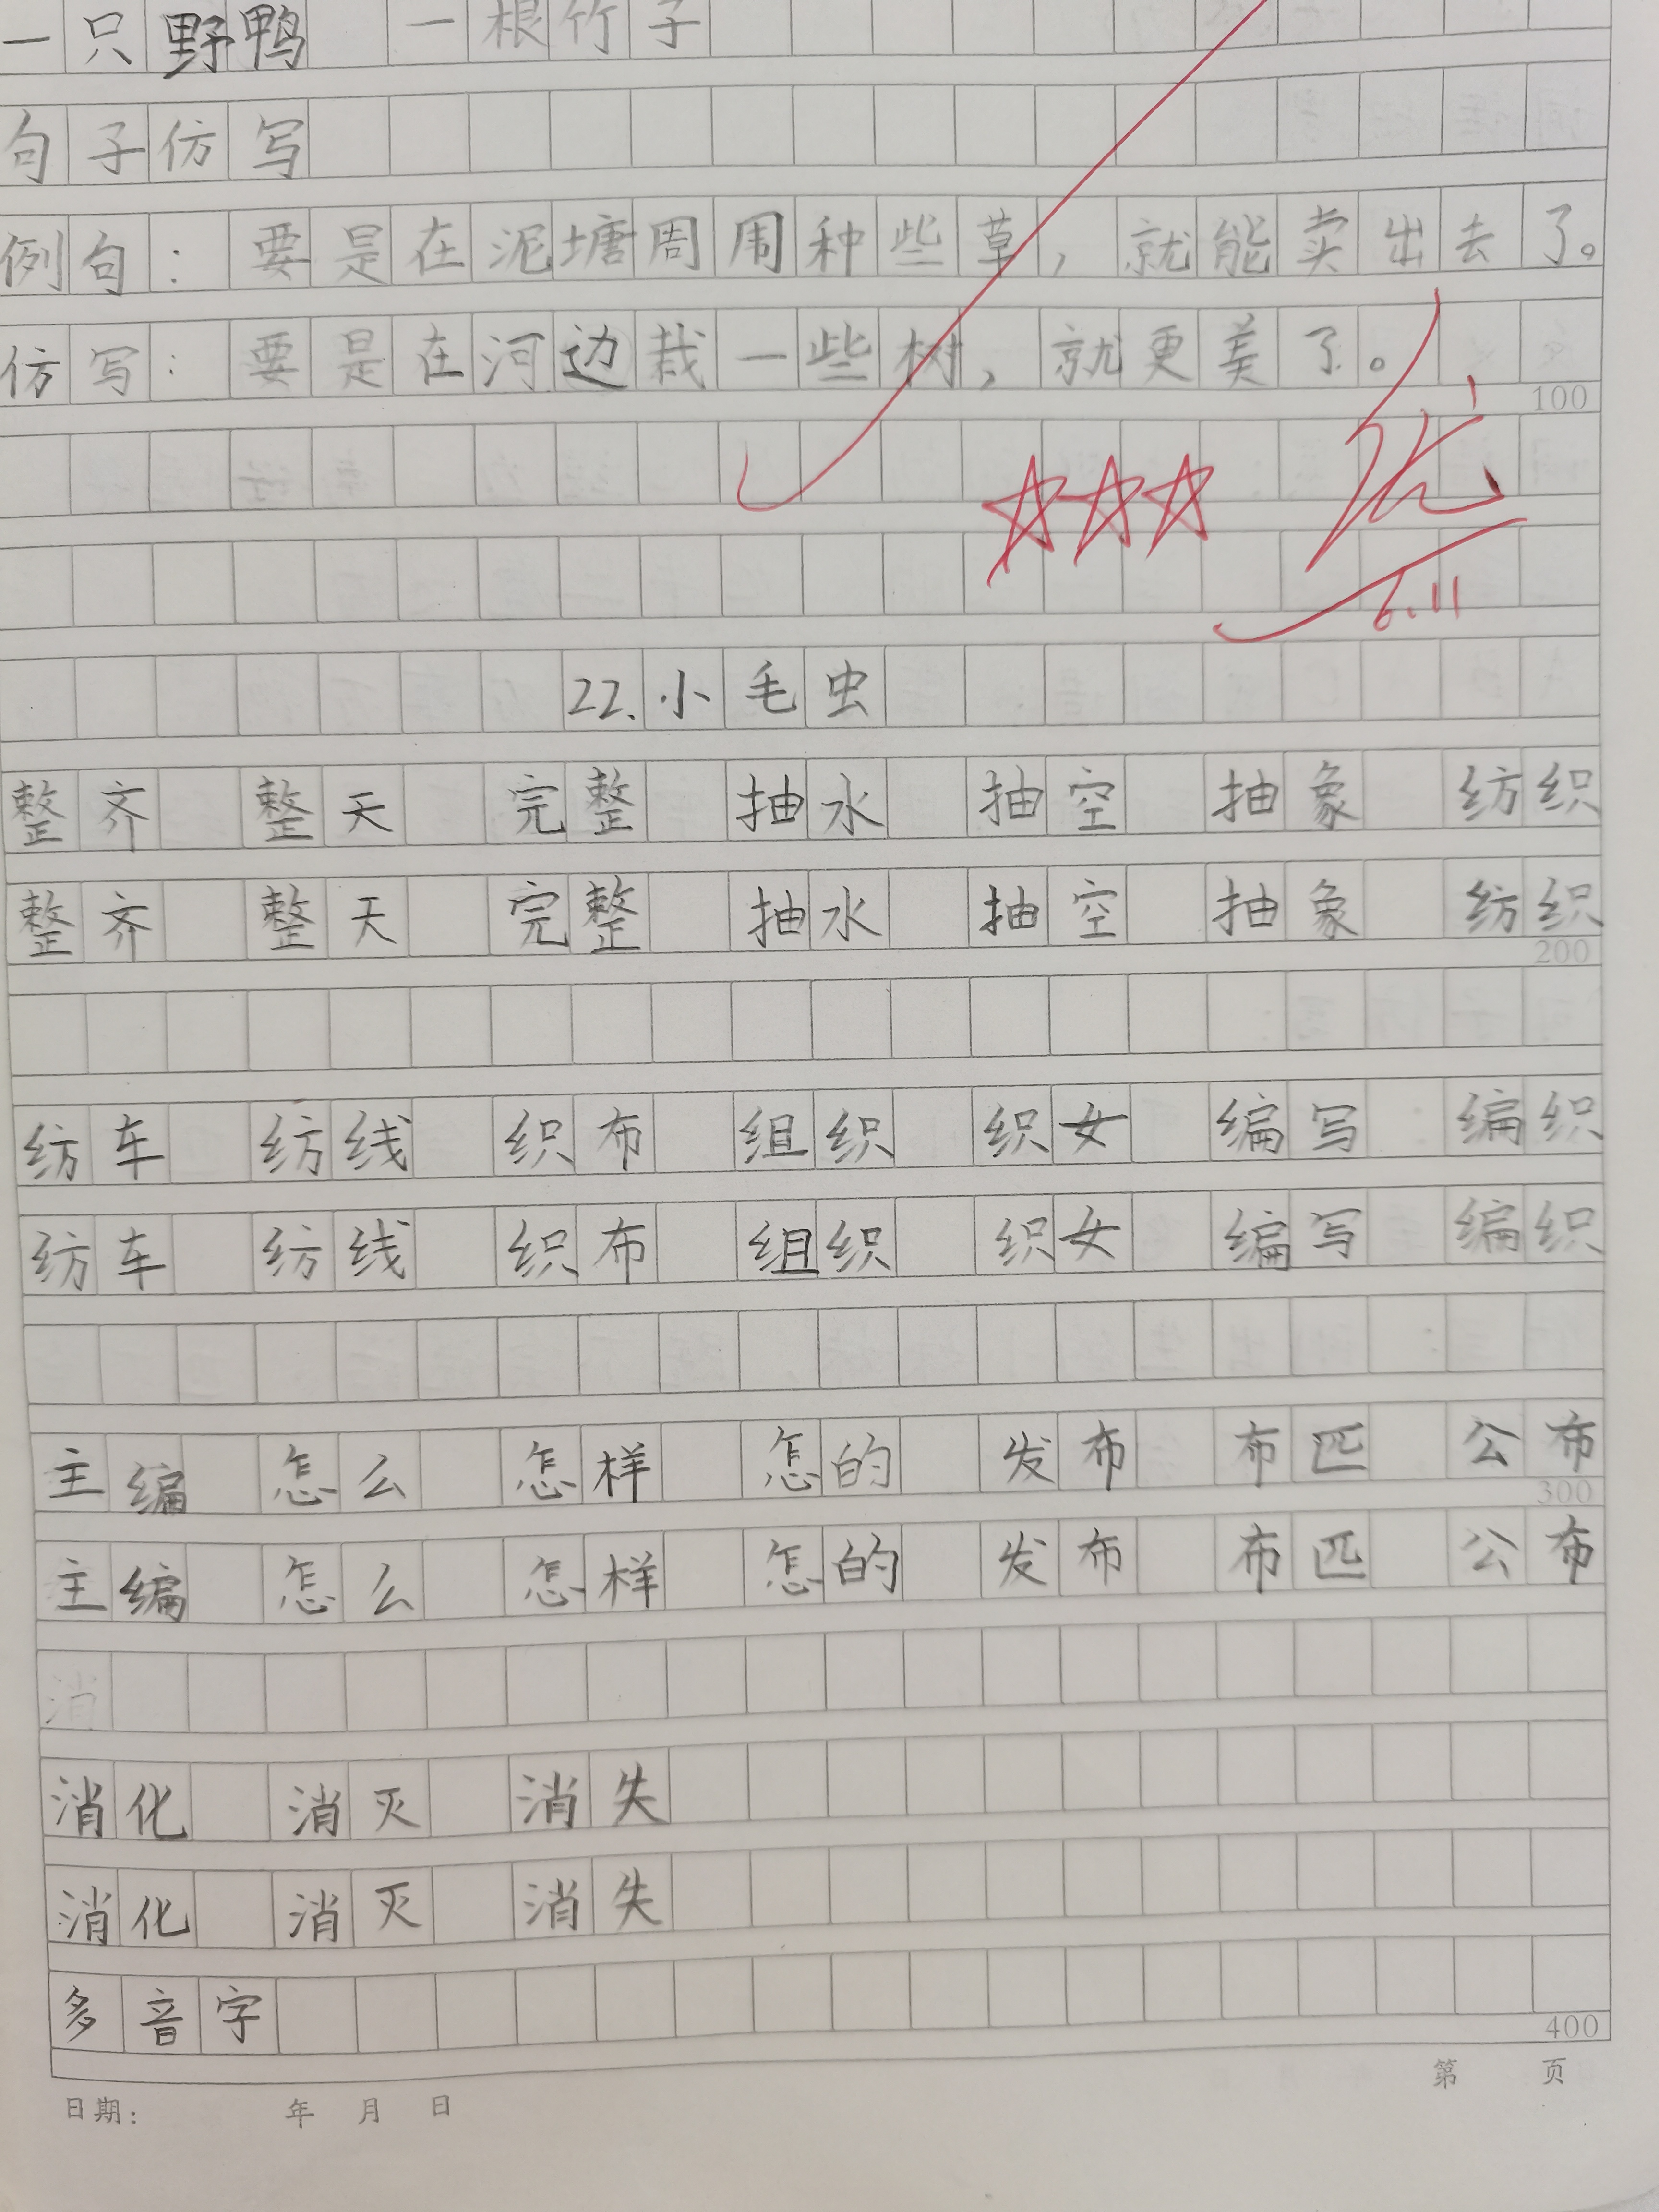 一只野鸭 一根竹子
句子仿写
例句：要是在泥塘周围种些草，就能卖出去了。
仿写：要是在河边栽一些树，就更美了。
100
优
6.11
22.小毛虫
整齐 整天 完整 抽水 抽空 抽象 纺织
整齐 整天 完整 抽水 抽空 抽象 纺织
200
纺车 纺线 织布 组织 织女 编写 编织
纺车 纺线 织布 组织 织女 编写 编织
主编 怎么 怎样 怎的 发布 布匹 公布
300
主编 怎么 怎样 怎的 发布 布匹 公布
消
消化 消灭 消失
消化 消灭 消失
多音字
400
第 页
日期: 年 月 日